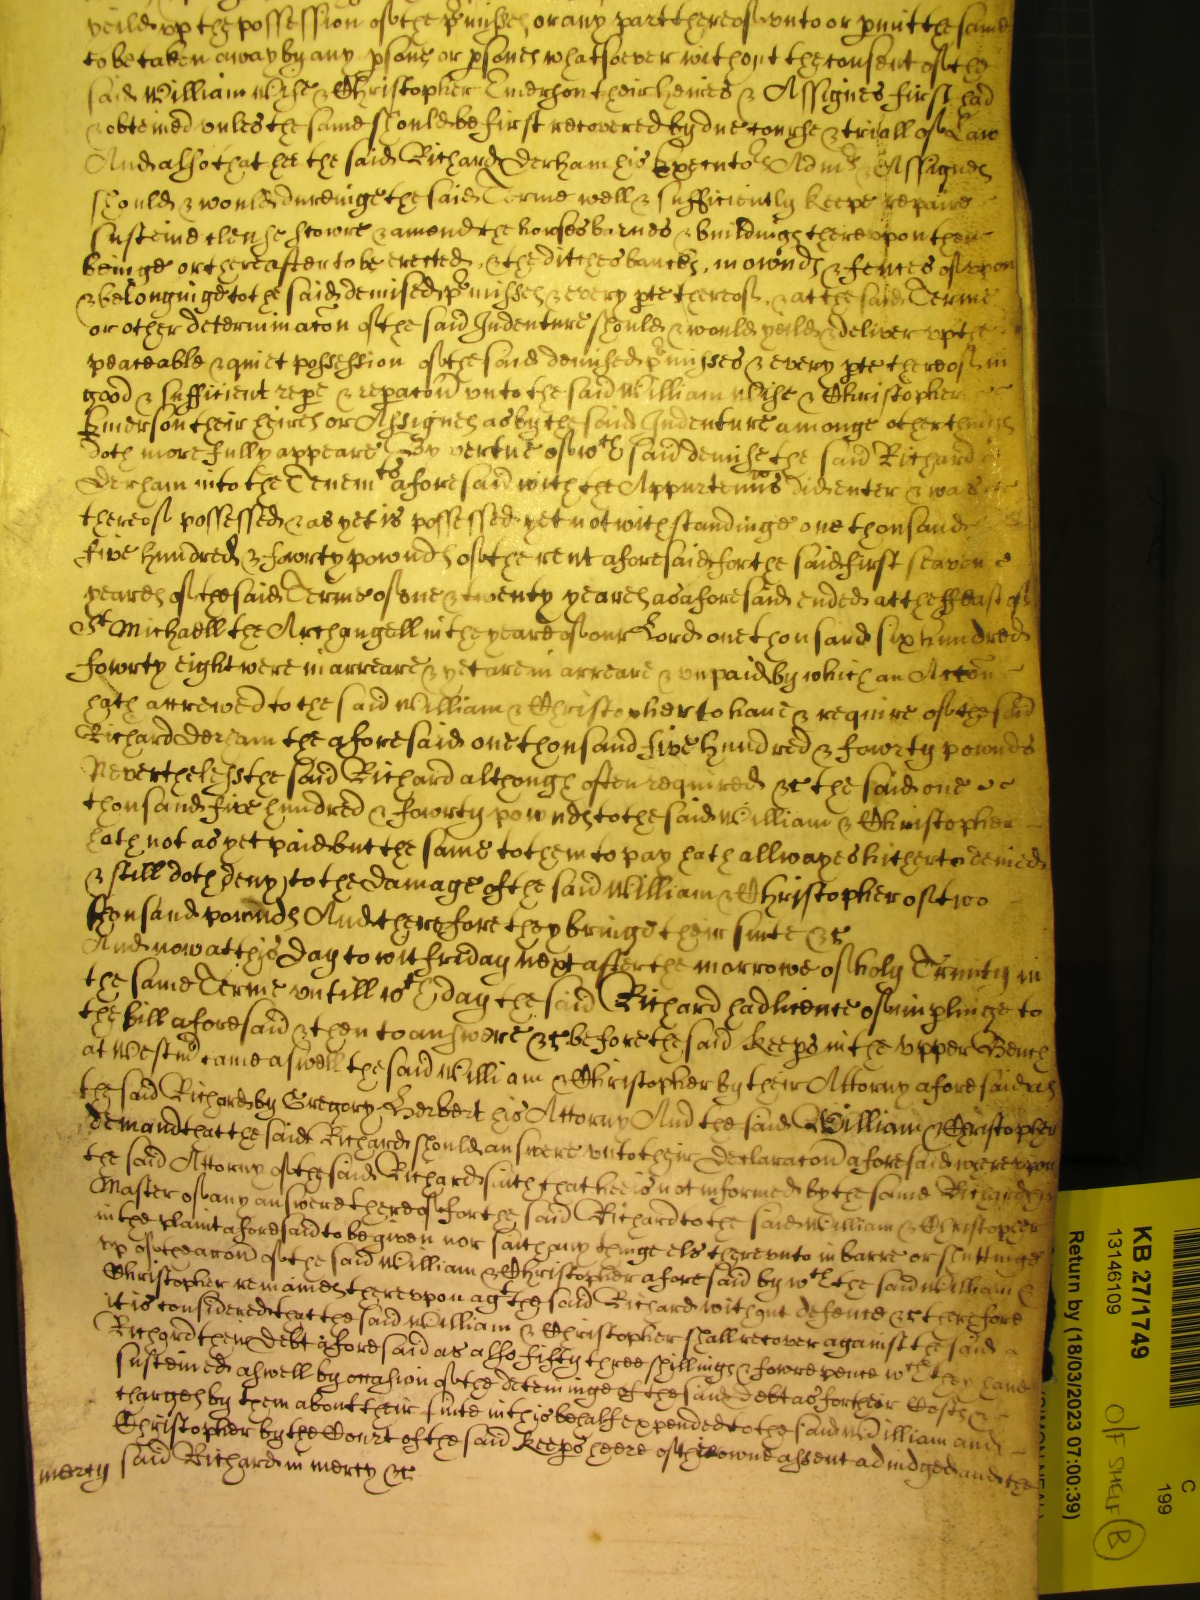 yeild vpp the possession of the p'misses or any part thereof vnto or p'mitt the same
to be taken away by any psone or psones whatsoever without the consent of the
said William Wise & Christopher Emerson their heires & Assignes first had
& obteined vnles the same should be first recovered by due course & triall of Law
And also that he the said Richard Derham his Executors Adm's & Assignes
should & would dureinge the said Terme well & sufficiently keepe repaire
susteine clense scowre & amend the houses barnes & buildings therevpon then
beinge or thereafter to be erected, & the ditches bancks, mownds & fences of vpon
& belonginge to the said demised p'misses & every pte thereof, & at the said Terme
or other determinacon of the said Indenture should & would yeild & deliver vp the
peaceable & quiet possession of the said demised p'misses & every pte thereof in
good & sufficient repe & repacon vnto the said William Wise & Christopher
Emerson their heires or Assignes as by the said Indenture amonge other things
doth more fully appeare By vertue of wch said demise the said Richard
Derham into the Tenemts aforesaid with the Appurtennces did enter & was
thereof possessed & as yet is possessed yet notwithstandinge one thousand
five hundred & fowrty pownds of the rent aforesaid for the said first seaven
yeares of the said Terme of one & twenty yeares as aforesaid ended at the ffeast of
St Michaell the Archangell in the yeare of our Lord one thousand six hundred
fowrty eight were in arreare & yet are in arreare & vnpaid by which an Accon
hath accrewed to the said William & Christopher to have & require of the said
Richard Derham the aforesaid one thousand five hundred & fowrty pownds
Neverthelesse the said Richard although often required &c the said one
thousand five hundred & fowrty pownds to the said William & Christopher
hath not as yet paid but the same to them to pay hath allwayes hitherto denied
& still doth deny, to the damage of the said William & Christopher of two
thousand pownds And therefore they bringe their suite &c
And now at this day to wit friday next after the morrowe of holy Trinity in
the same Terme vntill wch day the said Richard had licence of imparlinge to
the bill aforesaid & then to answere &c before the said keeps in the vpper Bench
at Westmr came aswell the said William & Christopher by their Attorny aforesaid as
the said Richard by Gregory Herbert his Attorny And the said William & Christopher
demand that the said Richard should answere vnto their declaracon aforesaid wherevpon
the said Attorny of the said Richard saith that hee is not informed by the same Richard his
Master of any answere thereof for the said Richard to the said William & Christopher
in the plaint aforesaid to be given nor saith any thinge els therevnto in barre or shuttinge
vp of the accon of the said William & Christopher aforesaid by wch the said William &
Christopher remaines therevpon agt the said Richard without defence &c therefore
it is considered that the said William & Christopher shall recover against the said
Richard their debt aforesaid as also fifty three shillings & fowre pence wch they have
susteined aswell by occasion of the deteininge of the said debt as for their Costs &
charges by them about their suite in this behalf expended to the said William and
Christopher by the Court of the said keeps heere of their owne assent adiudged and the
mercy said Richard in mercy &c
KB 27/1749
13146109
Return by (18/03/2023 07:00:39)
O/F SHELF B
C
199